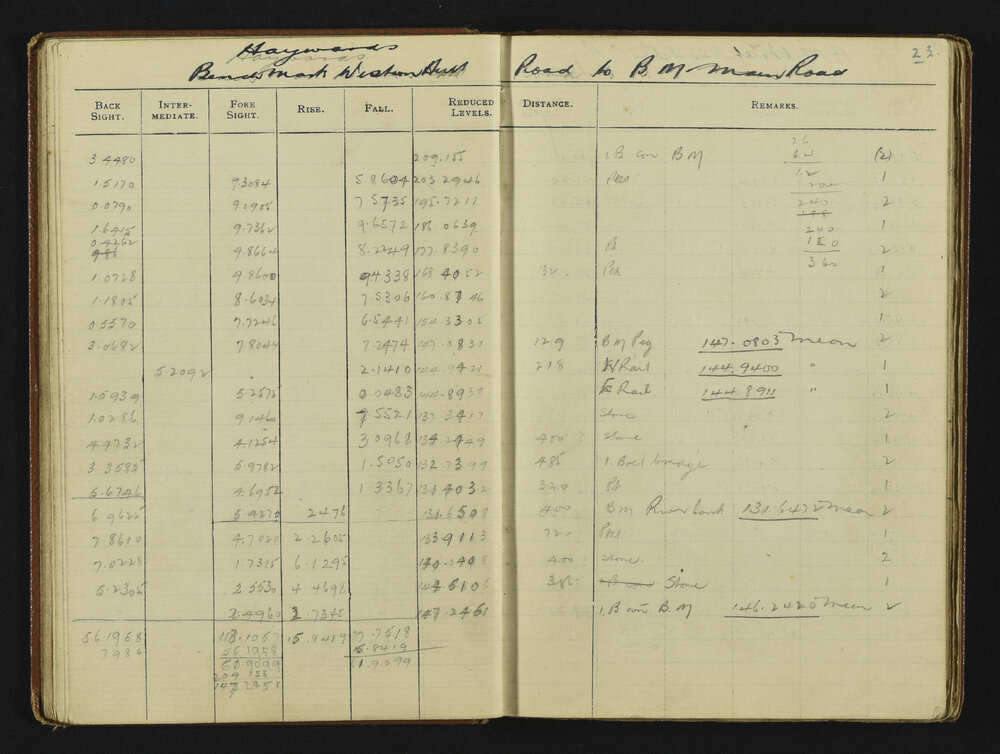 23.
Haywards
Bench Mark Western Hutt Road to B.M. Main Road
BACK SIGHT. INTERMEDIATE. FORE SIGHT. RISE. FALL. REDUCED LEVELS. DISTANCE. REMARKS.
3.4480 209.155 1.B con BM 76 (2)
64
1.5170 9.3084 5.8604 203.2946 Peg 12 1
200
0.0790 9.0905 7.5735 195.7211 240 2
1.6415 9.7362 9.6572 186.0639 240 1
0.4262 9.8664 8.2249 177.8390 B. 120 2
986 360
1.0728 9.8600 9.4338 168.4052 132 Peg 1
1.1805 8.6034 7.5306 160.8746 2
0.5570 7.7246 6.5441 154.3305 1
3.0682 7.8044 7.2474 147.0831 129 BM Peg 147.0805 mean 2
5.2092 2.1410 144.9421 218 Rail 144.9400 " 1
1.5939 5.2575 0.0483 144.8938 Rail 144.8911 "
1.0286 9.1460 7.5521 137.3417 Stone 2
4.4732 4.1254 3.0968 134.2449 400 Stone 1
3.3585 5.9782 1.5050 132.7399 485 1. Bolt bridge 2
5.6746 4.6952 1.3367 131.4032 320 1
6.9625 5.4270 .2476 131.6508 400 BM River bank 131.6472 mean 2
7.8610 4.7020 2.2605 133.9113 720 1
7.0228 1.7315 6.1295 140.0408 400 Stone 2
5.2305 2.5530 4.4698 144.5106 386 Stone 1
2.4960 2.7345 147.2451 1.B con BM 146.2420 mean 2
56.1958 118.1057 15.8419 77.7518
7986 56.1958 15.8419
61.9099 61.9099
209.155
147.2451